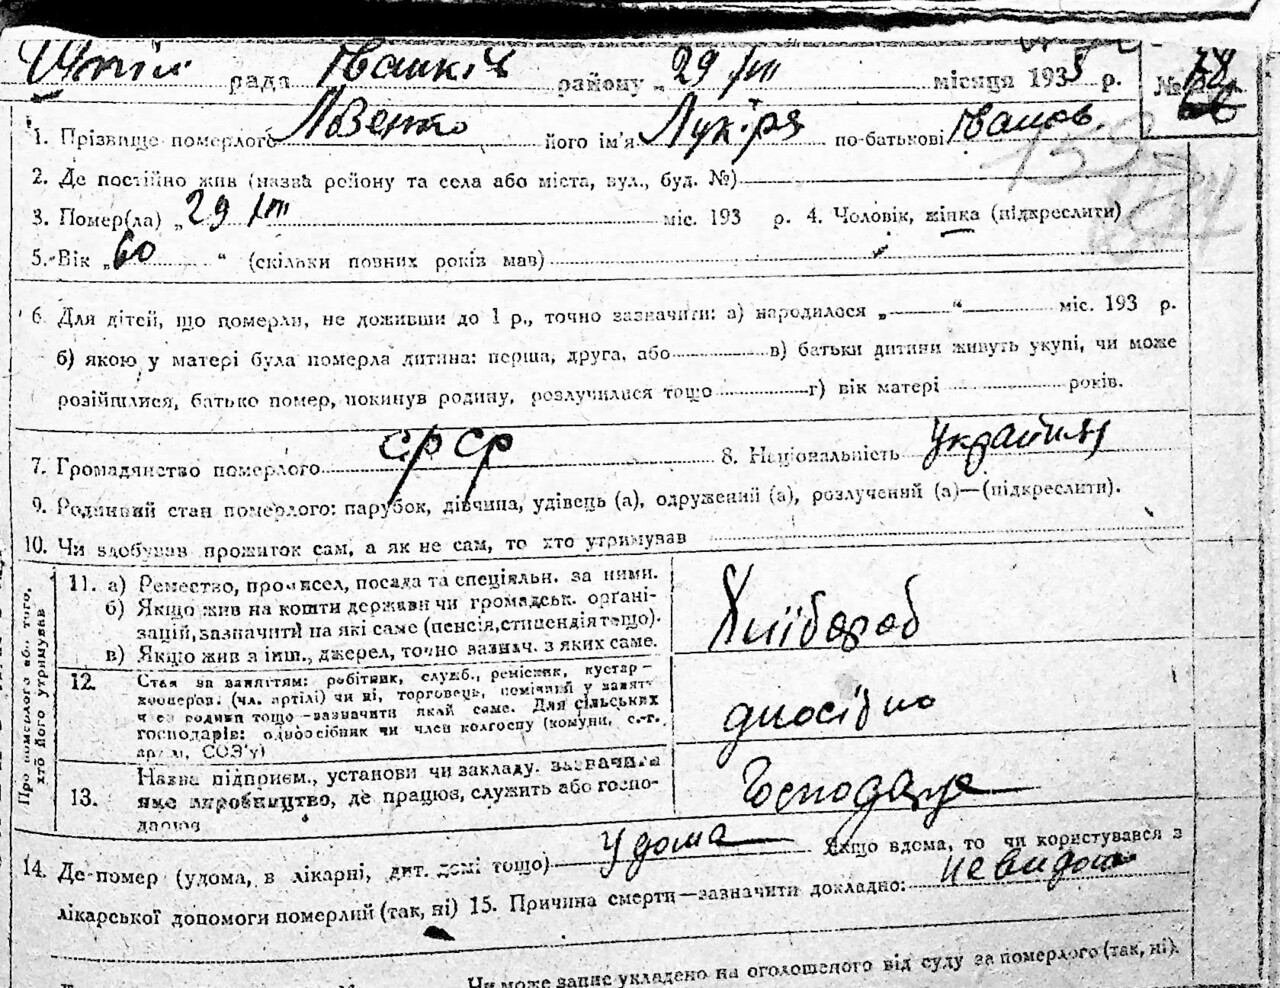 рада Іванків району „29 /III місяця 1933 р. №
1. Прізвище померлого його ім'я Лукіря по-батькові Іванов.
2. Де постійно жив (назва району та села або міста, вул., буд. №)
3. Помер(ла) „29 /III міс. 193 р. 4. Чоловік, жінка (підкреслити)
5. Вік „60 “ (скільки повних років мав)
6. Для дітей, що померли, не доживши до 1 р., точно зазначити: а) народилося „ “ міс. 193 р.
б) якою у матері була померла дитина: перша, друга, або в) батьки дитини живуть укупі, чи може
розійшлися, батько помер, покинув родину, розлучилися тощо г) вік матері років.
7. Громадянство померлого СРСР 8. Національність
9. Родинний стан померлого: парубок, дівчина, удівець (а), одружений (а), розлучений (а)—(підкреслити).
10. Чи здобував прожиток сам, а як не сам, то хто утримував
Про померлого або того, хто його утримував
11. а) Ремество, промисел, посада та спеціяльн. за ними.
б) Якщо жив на кошти держави чи громадськ. органі-
зацій, зазначити на які саме (пенсія, стипендія тощо).
в) Якщо жив з інш., джерел, точно зазнач. з яких саме.
Хлібороб
12. Стан за заняттям: робітник, служб., ремісник, кустар-
кооперов. (чл. артілі) чи ні, торговець, помічний у занятт.
члев родини тощо—зазначити який саме. Для сільських
господарів: одноосібник чи член колгоспу (комуни, с.-г.
артілі, СОЗ'у)
13. Назва підприєм., установи чи закладу. зазначити
яке виробництво, де працює, служить або госпо-
дарює
14. Де помер (удома, в лікарні, дит. домі тощо) удома Якщо вдома, то чи користувався з
лікарської допомоги померлий (так, ні) 15. Причина смерти—зазначити докладно:
Чи може запис укладено на оголошеного від суду за померлого (так, ні).